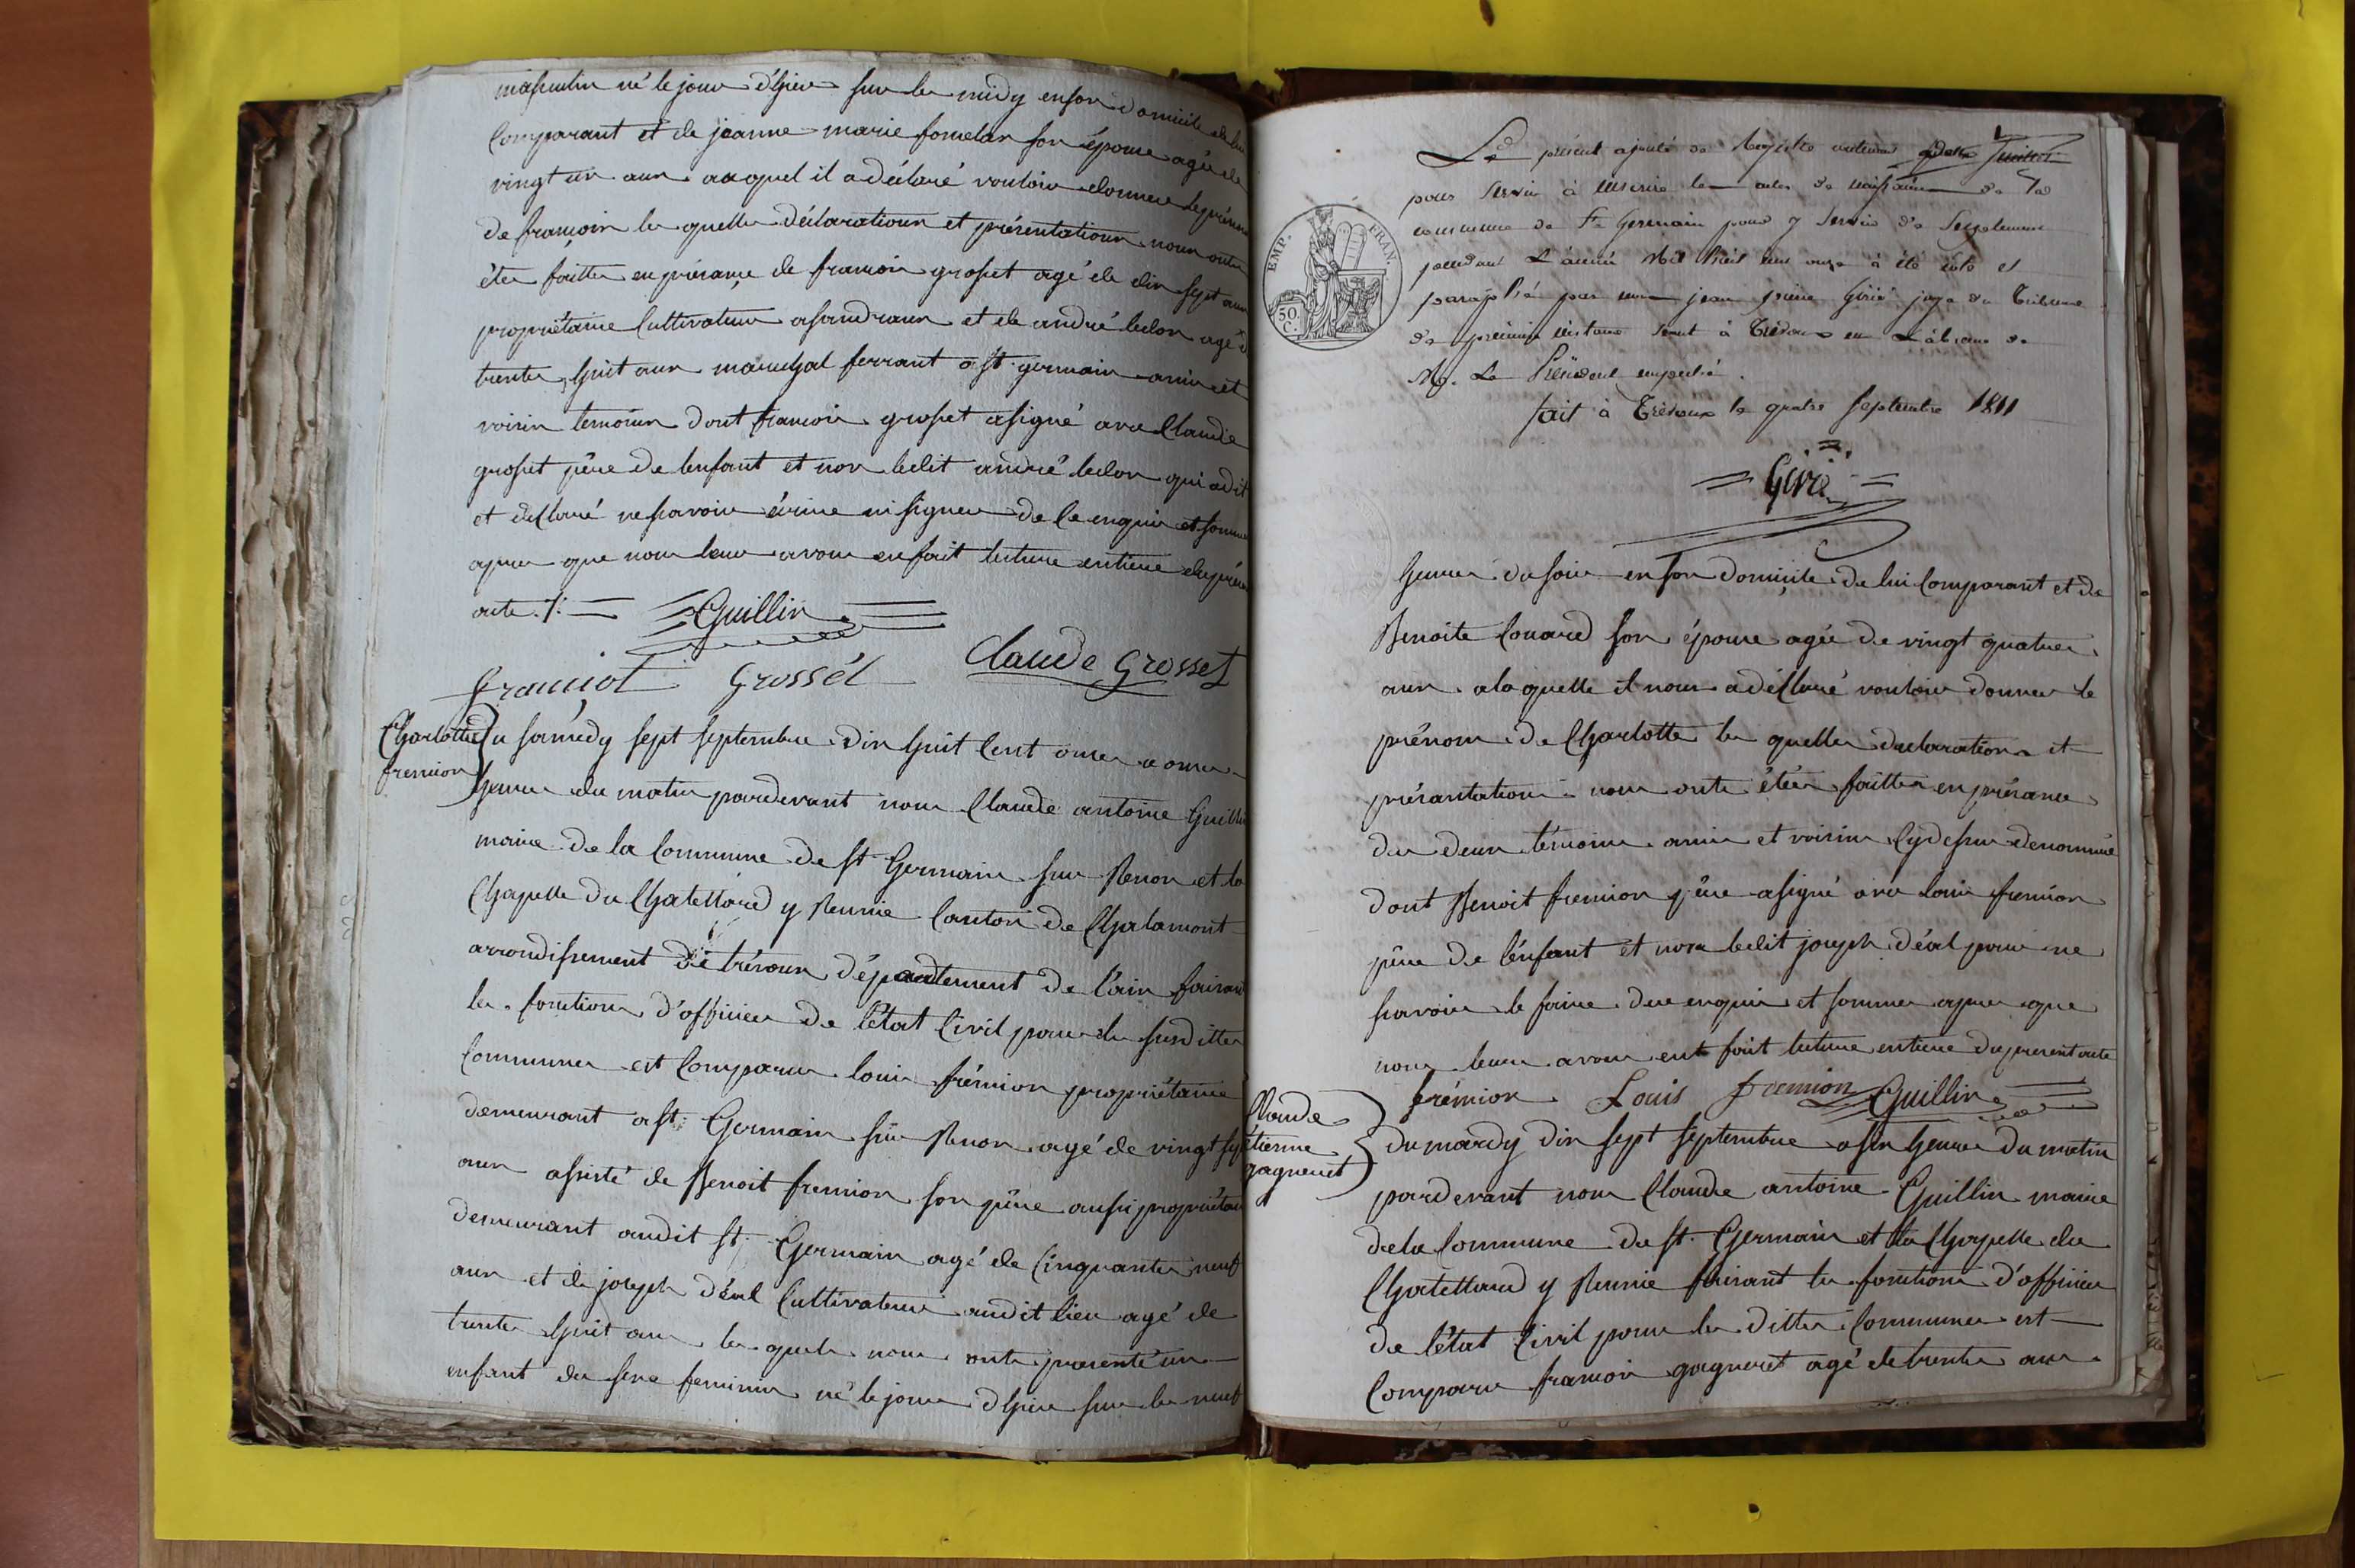 masculin né le jour d'hier sur les midy en son domicile de lui
Comparant et de jeanne marie fometan son épouse agée de
vingt un ans auquel il a déclaré vouloir donner le prénom
de françois les quelles déclarations et présentations nous onts
étés faittes en présance de françois grosset agé de dix sept ans
propriétaire Cultivateur a sandrans et de andré bedon agé de
trente huit ans marechal ferrant a st germain amis et
voisin temoins dont françois grosset a signé avec Claude
grosset père de lenfant et non ledit andré bedon qui a dit
et déclaré ne savoir écrire ni signer de ce enquis et sommé
apres que nous leur avons en fait lecture entiere du présent
acte ./. Guillin
françiot Grossét Claude Grosset
Charlotte
fremion
Du samédy sept septembre dix huit Cent onze a onze
heures du matin pardevant nous Claude antoine Guillin
maire de la Commune de st Germain sur Renon et la
Chapelle du Chatellard y Reunie Canton de Chalamont
arrondissement de trévoux département de l'ain faisant
les fonctions d'officier de l'état Civil pour les susdittes
Communes est Comparu louis frémion propriétaire
demeurant a st Germain sur Renon agé de vingt sept
ans assisté de Benoit fremion son père aussi propriétaire
demeurant audit st Germain agé de Cinquante neuf
ans et de joseph déal Cultivateur audit lieu agé de
trente huit ans les quels nous onts presenté un
enfant du sexe feminin né le jour d'hier sur les neuf
Le présent ajouté de Registre contenant
pour servir à inscrire les actes de naissance de la
commune de St Germain pour y servir de Supplement
pendant L'année Mil huit cent onze a été coté et
paraphé par nous jean pierre Girié juge du Tribunal
de premiere instance séant à Trévoux en L'absence de
M. Le Président empeché.
fait à Trévoux le quatre septembre 1811
Girié
EMP. FRAN.
50 C.
heures du soir en son domicile de lui Comparant et de
Benoite Couard son épouse agée de vingt quatres
ans a la quelle il nous a déclaré vouloir donner le
prénom de Charlotte les quelles declarations et
présantations nous onts étées faittes en présance
des deux témoins amis et voisins Cydessus denommé
dont Benoit fremion père a signé avec louis fremion
père de l'énfant et non ledit joseph déal pour ne
savoir le faire de ce enquis et sommer apres que
nous leurs avons ent fait lecture entiere du present acte
frémion Louis fremion Guillin
Claude
étienne
gagneret
Du mardy dix sept septembre a six heures du matin
pardevant nous Claude antoine Guillin maire
de la Commune de st Germain et la Chapelle du
Chatellard y Reunie faisant les fonctions d'officier
de l'état Civil pour les dittes Communes est
Comparu françois gagneret agé de trente ans